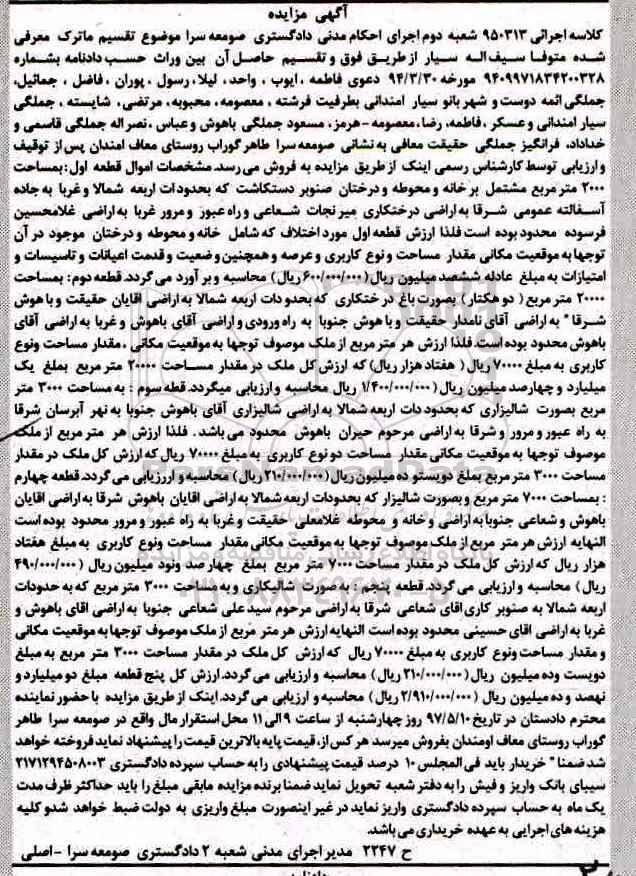 آگهی مزایده
کلاسه اجرائی ۹۵۰۳۱۳ شعبه دوم اجرای احکام مدنی دادگستری صومعه سرا موضوع تقسیم ماترک معرفی
شده متوفا سیف اله سیار از طریق فوق و تقسیم حاصل آن بین وراث حسب دادنامه بشماره
۹۴۰۹۹۷۱۸۳۴۲۰۰۳۲۸ مورخه ۹۴/۳/۳۰ دعوی فاطمه ، ایوب ، واحد، لیلا، رسول ، پوران ، فاضل ، جمائیل،
جملگی ائمه دوست و شهربانو سیار امندانی بطرفیت فرشته ، معصومه، محبوبه، مرتضی، شایسته ، جملگی
سیار امندانی و عسکر ، فاطمه، رضا، معصومه - هرمز، مسعود جملگی باهوش و عباس ، نصراله جملگی قاسمی و
خداداد، فرانگیز جملگی حقیقت معافی به نشانی صومعه سرا طاهر گوراب روستای معاف امندان پس از توقیف
و ارزیابی توسط کارشناس رسمی اینک از طریق مزایده به فروش می رسد. مشخصات اموال قطعه اول : بمساحت
۲۰۰۰ متر مربع مشتمل بر خانه و محوطه و درختان صنوبر دستکاشت که بحدودات اربعه شمالا و غربا به جاده
آسفالته عمومی شرقا به اراضی درختکاری میر نجات شعاعی و راه عبور و مرور غربا به اراضی غلامحسین
فرسوده محدود بوده است فلذا ارزش قطعه اول مورد اختلاف که شامل خانه و محوطه و درختان موجود در آن
توجها به موقعیت مکانی مقدار مساحت و نوع کاربری و عرصه و همچنین وضعیت و قدمت اعیانات و تاسیسات و
امتیازات به مبلغ عادله ششصد میلیون ریال (۶۰۰/۰۰۰/۰۰۰ ریال ) محاسبه و بر آورد می گردد. قطعه دوم : بمساحت
۲۰۰۰۰ متر مربع ( دو هکتار ) بصورت باغ در ختکاری که بحدودات اربعه شمالا به اراضی اقایان حقیقت و با هوش
شرقا " به اراضی آقای نامدار حقیقت و با هوش جنوبا به راه ورودی و اراضی آقای باهوش و غربا به اراضی آقای
باهوش محدود بوده است. فلذا ارزش هر متر مربع از ملک موصوف توجها به موقعیت مکانی ، مقدار مساحت ونوع
کاربری به مبلغ ۷۰۰۰۰ ریال ( هفتاد هزار ریال) که ارزش کل ملک در مقدار مساحت ۲۰۰۰۰ متر مربع بملغ یک
میلیارد و چهارصد میلیون ریال ( ۱/۴۰۰/۰۰۰/۰۰۰ ریال محاسبه و ارزیابی میگردد. قطه سوم : به مساحت ۳۰۰۰ متر
مربع بصورت شالیزاری که بحدودات اربعه شمالا به اراضی شالیزاری آقای باهوش جنوبا به نهر آبرسان شرقا
به راه عبور و مرور و شرقا به اراضی مرحوم حیران باهوش محدود می باشد . فلذا ارزش هر متر مربع از ملک
موصوف توجها به موقعیت مکانی مقدار مساحت دو نوع کاربری به مبلغ ۷۰۰۰۰ ریال که ارزش کل ملک در مقدار
مساحت ۳۰۰۰ متر مربع بملغ دویستو ده میلیون ریال (۲۱۰/۰۰۰/۰۰۰ ریال ) محاسبه و ارزیابی می گردد. قطعه چهارم
: بمساحت ۷۰۰۰ متر مربع و بصورت شالیزار که بحدودات اربعه شمالا به اراضی اقایان باهوش شرقا به اراضی اقایان
باهوش و شعاعی جنوبا به اراضی و خانه و محوطه غلامعلی حقیقت و غربا به راه عبور و مرور محدود بوده است
النهایه ارزش هر متر مربع از ملک موصوف توجها به موقعیت مکانی مقدار مساحت ونوع کاربری به مبلغ هفتاد
هزار ریال که ارزش کل ملک در مقدار مساحت ۷۰۰۰ متر مربع بملغ چهارصد ونود میلیون ریال ( ۴۹۰/۰۰۰/۰۰۰
ریال) محاسبه و ارزیابی می گردد. قطعه پنجم : به صورت شالیکاری و به مساحت ۳۰۰۰ متر مربع که به حدودات
اربعه شمالا به صنوبر کاری اقای شعاعی شرقا به اراضی مرحوم سید علی شعاعی جنوبا به اراضی اقای باهوش و
غربا به اراضی اقای حسینی محدود بوده است النهایه ارزش هر متر مربع از ملک موصوف توجها به موقعیت مکانی
و مقدار مساحت ونوع کاربری به مبلغ ۷۰۰۰۰ ریال که ارزش کل ملک در مقدار مساحت ۳۰۰۰ متر مربع به مبلغ
دویست وده میلیون ریال (۲۱۰/۰۰۰/۰۰۰ ریال ) محاسبه و ارزیابی می گردد. ارزش کل پنج قطعه مبلغ دو میلیارد و
نهصد و ده میلیون ریال (۲/۹۱۰/۰۰۰/۰۰۰ ریال ) محاسبه و ارزیابی می گردد. اینک از طریق مزایده با حضور نماینده
محترم دادستان در تاریخ ۹۷/۵/۱۰ روز چهارشنبه از ساعت ۹ الی ۱۱ محل استقرار مال واقع در صومعه سرا طاهر
گوراب روستای معاف اومندان بفروش میرسد هر کس از، قیمت پایه بالاترین قیمت را پیشنهاد نماید فروخته خواهد
شد ضمنا " خریدار باید فی المجلس ۱۰ درصد قیمت پیشنهادی را به حساب سپرده دادگستری ۲۱۷۱۲۹۴۵۰۸۰۰۳
سیبای بانک واریز و فیش را به دفتر شعبه تحویل نماید ضمنا برنده مزایده مابقی مبلغ را باید حداکثر ظرف مدت
یک ماه به حساب سپرده دادگستری واریز نماید در غیر اینصورت مبلغ واریزی به دولت ضبط خواهد شدو کلیه
هزینه های اجرایی به عهده خریداری می باشد.
ح ۲۲۴۷ مدیر اجرای مدنی شعبه ۲ دادگستری صومعه سرا - اصلی